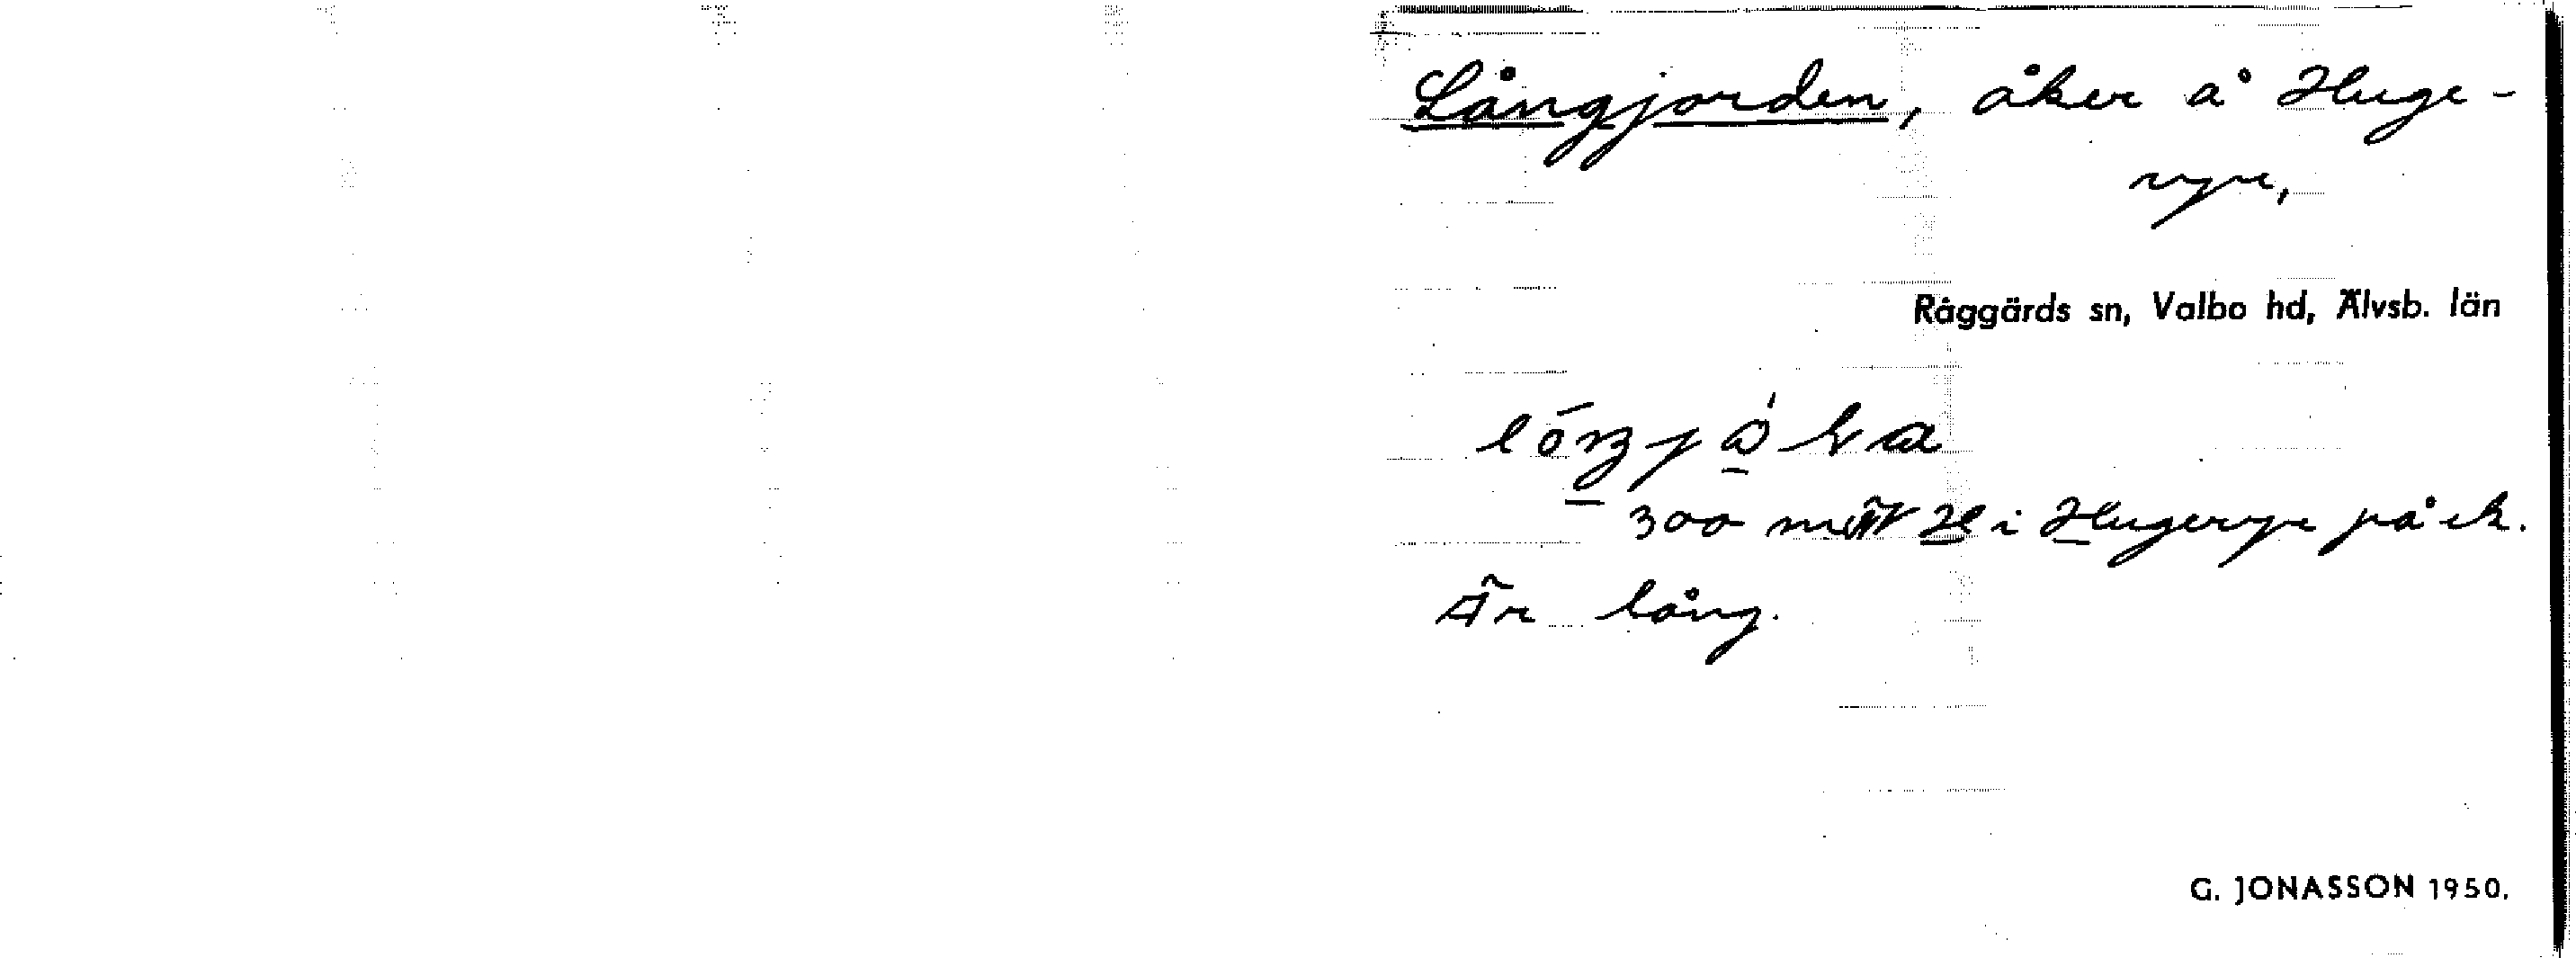 Långjorden, åker å Huge-
rype,
Råggärds sn, Valbo hd, Älvsb. län
300 m
H i Hugerype på ek.
Är lång.
G. JONASSON 1950.